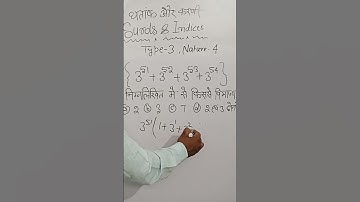 घातांक और करणी
Surds & Indices
Type-3, Nature-4
{3^51 + 3^52 + 3^53 + 3^54}
निम्नलिखित में से किससे विभाज्य
ⓐ 2 ⓑ 3 ⓒ 7 ⓓ 2 एवं 3 दोनों
3^51 (1 + 3^1 + 3^2